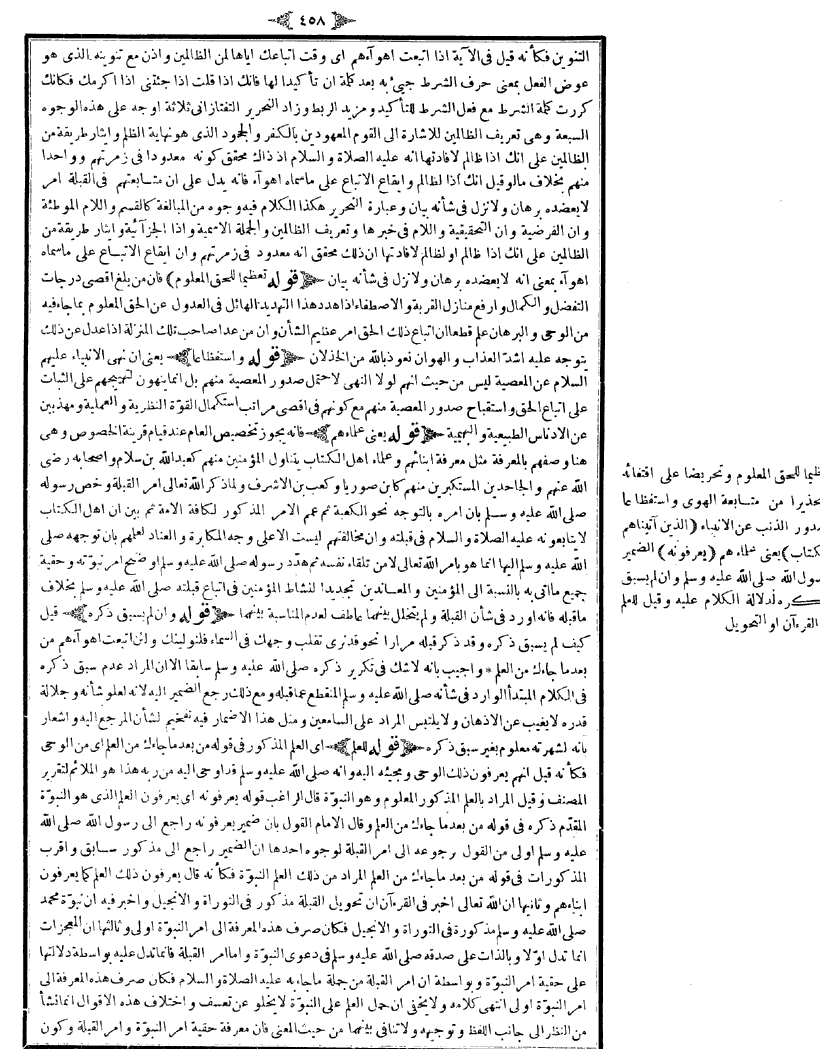 ٤٥٨
التنوين فكأنه قيل فى الآية اذا اتبعت اهوآءهم اى وقت اتباعك اياها لمن الظالمين واذن مع تنوينه الذى هو
عوض الفعل بمعنى حرف الشرط جيئ به بعد كلمة ان تأكيدا لها فانك اذا قلت اذا جئتنى اذا اكرمك فكانك
كررت كلمة الشرط مع فعل الشرط للتأكيد ومزيد الربط وزاد التحرير التفتازانى ثلاثة اوجه على هذه الوجوه
السبعة وهى تعريف الظالمين للاشارة الى القوم المعهودين بالكفر والجحود الذى هو نهاية الظلم وايثار طريقة من
الظالمين على انك اذا ظالم لافادتها انه عليه الصلاة والسلام اذ ذاك محقق كونه معدودا فى زمرتهم وواحدا
منهم بخلاف مالو قيل انك اذا لظالم وايقاع الاتباع على ماسماه اهوآء فانه يدل على ان متابعتهم فى القبلة امر
لايعضده برهان ولانزل فى شأنه بيان وعبارة التحرير هكذا الكلام فيه وجوه من المبالغة كالقسم واللام الموطئة
وان الفرضية وان التحقيقية واللام فى خبرها وتعريف الظالمين والجملة الاسمية واذا الجزآئية وايثار طريقة من
الظالمين على انك اذا ظالم او لظالم لافادتها ان ذلك محقق انه معدود فى زمرتهم وان ايقاع الاتباع على ماسماه
اهوآء بمعنى انه لايعضده برهان ولانزل فى شأنه بيان ﴿قوله تعظيما للحق المعلوم﴾ فان من بلغ اقصى درجات
التفضل والكمال وارفع منازل القربة والاصطفاء اذا هدد هذا التهديد الهائل فى العدول عن الحق المعلوم بماجاء فيه
من الوحى والبرهان علم قطعا ان اتباع ذلك الحق امر عظيم الشأن وان من عدا صاحب تلك المنزلة اذا عدل عن ذلك
يتوجه عليه اشد العذاب والهوان نعوذ بالله من الخذلان ﴿قوله واستفظاعا﴾ يعنى ان نهى الانبياء عليهم
السلام عن المعصية ليس من حيث انهم لولا النهى لاحتمل صدور المعصية منهم بل انما ينهون لتهييجهم على الثبات
على اتباع الحق واستقباح صدور المعصية منهم مع كونهم فى اقصى مراتب استكمال القوة النظرية والعملية ومهذبين
عن الادناس الطبيعية والبهيمية ﴿قوله يعنى علماءهم﴾ فانه يجوز تخصيص العام عند قيام قرينة الخصوص وهى
هنا وصفهم بالمعرفة مثل معرفة ابنائهم وعلماء اهل الكتاب يتناول المؤمنين منهم كعبدالله بن سلام واصحابه رضى
الله عنهم والجاحدين المستكبرين منهم كابن صوريا وكعب بن الاشرف ولماذكر الله تعالى امر القبلة وخص رسوله
صلى الله عليه وسلم بان امره بالتوجه نحو الكعبة ثم عمم الامر المذكور لكافة الامة ثم بين ان اهل الكتاب
لايتابعونه عليه الصلاة والسلام فى قبلته وان مخالفتهم ليست الاعلى وجه المكابرة والعناد لعلمهم بان توجهه صلى
الله عليه وسلم اليها انما هو بامر الله تعالى لامن تلقاء نفسه ثم هدد رسوله صلى الله عليه وسلم اوضح امر نبوته وحقية
جميع مااتى به بالنسبة الى المؤمنين والمعاندين تجديدا لنشاط المؤمنين فى اتباع قبلته صلى الله عليه وسلم بخلاف
ماقبله فانه اورد فى شأن القبلة ولم يتخلل بينهما عاطف لعدم المناسبة بينهما ﴿قوله وان لم يسبق ذكره﴾ قيل
كيف لم يسبق ذكره وقد ذكر قبله مرارا نحو قد نرى تقلب وجهك فى السماء فلنولينك ولئن اتبعت اهوآءهم من
بعد ماجاءك من العلم * واجيب بانه لاشك فى تكرير ذكره صلى الله عليه وسلم سابقا الاان المراد عدم سبق ذكره
فى الكلام المبتدأ الوارد فى شأنه صلى الله عليه وسلم المنقطع عما قبله ومع ذلك رجع الضمير اليه لانه لعلو شأنه وجلالة
قدره لايغيب عن الاذهان ولايلتبس المراد على السامعين ومثل هذا الاضمار فيه تفخيم لشأن المرجع اليه واشعار
بانه لشهرته معلوم بغير سبق ذكره ﴿قوله للعلم﴾ اى العلم المذكور فى قوله من بعد ماجاءك من العلم اى من الوحى
فكأنه قيل انهم يعرفون ذلك الوحى ومجيئه اليه وانه صلى الله عليه وسلم قد اوحى اليه من ربه هذا هو الملائم لتقرير
المصنف وقيل المراد بالعلم المذكور المعلوم وهو النبوة قال الراغب قوله يعرفونه اى يعرفون العلم الذى هو النبوة
المقدم ذكره فى قوله من بعد ماجاءك من العلم وقال الامام القول بان ضمير يعرفونه راجع الى رسول الله صلى الله
عليه وسلم اولى من القول برجوعه الى امر القبلة لوجوه احدها ان الضمير راجع الى مذكور سابق واقرب
المذكورات فى قوله من بعد ماجاءك من العلم المراد من ذلك العلم النبوة فكأنه قال يعرفون ذلك العلم كما يعرفون
ابناءهم وثانيها ان الله تعالى اخبر فى القرءآن ان تحويل القبلة مذكور فى التوراة والانجيل واخبر فيه ان نبوة محمد
صلى الله عليه وسلم مذكورة فى التوراة والانجيل فكان صرف هذه المعرفة الى امر النبوة اولى وثالثها ان المعجزات
انما تدل اولا وبالذات على صدقه صلى الله عليه وسلم فى دعوى النبوة واما امر القبلة فانما تدل عليه بواسطة دلالتها
على حقية امر النبوة وبواسطة ان امر القبلة من جملة ماجاء به عليه الصلاة والسلام فكان صرف هذه المعرفة الى
امر النبوة اولى انتهى كلامه ولايخفى ان حمل العلم على النبوة لايخلو عن تعسف واختلاف هذه الاقوال انما نشأ
من النظر الى جانب اللفظ وتوجيهه ولاتنافى بينهما من حيث المعنى فان معرفة حقية امر النبوة وامر القبلة وكون
ظيما للحق المعلوم وتحريضا على اقتفائه
حذيرا من متابعة الهوى واستفظاعا
دور الذنب عن الانبياء (الذين آتيناهم
كتاب) يعنى علماءهم (يعرفونه) الضمير
سول الله صلى الله عليه وسلم وان لم يسبق
كره لدلالة الكلام عليه وقيل للعلم
القرءآن او التحويل